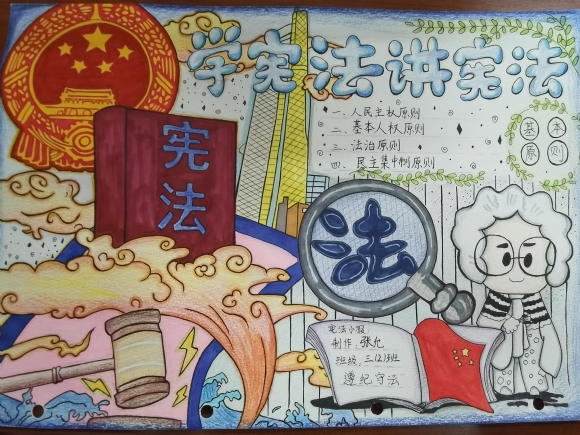 学宪法讲宪法
一、人民主权原则
二、基本人权原则
三、法治原则
四、民主集中制原则
基本
原则
宪法
法
宪法小报
制作：张允
班级：三（2）班
遵纪守法